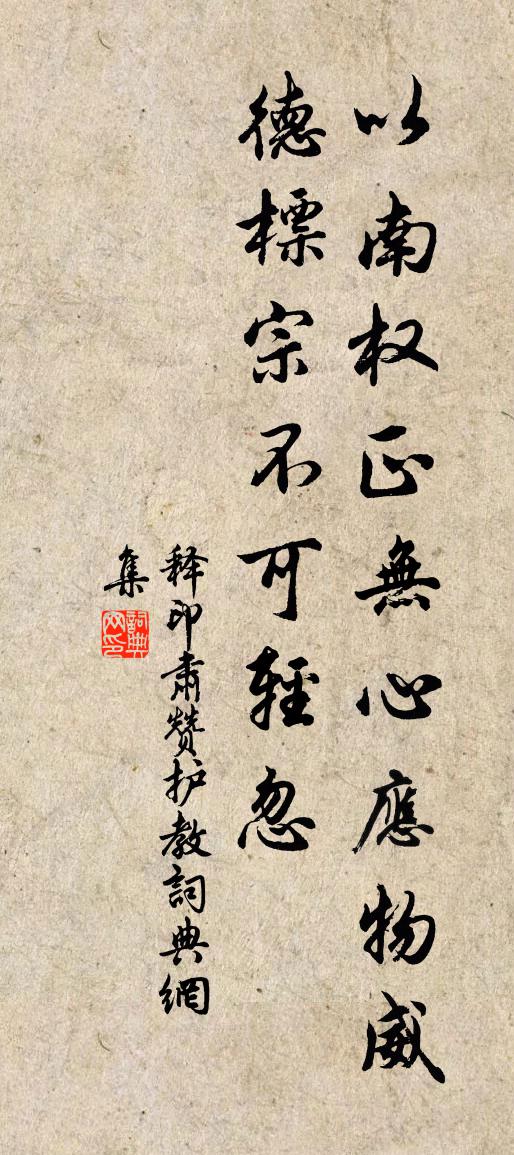 以南权正無心應物威
德標宗不可輕忽
释印肃赞护教詞典網
集
詞典
网印